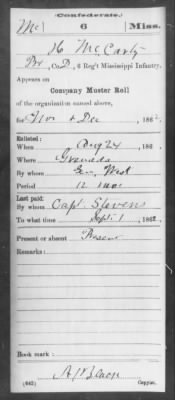 Confederate.
Mc 6 Miss.
H McCarty
Pvt, Co. D, 6 Reg't Mississippi Infantry.
Appears on
Company Muster Roll
of the organization named above,
for Nov & Dec, 1862.
Enlisted:
When Aug 24, 186
Where Grenada
By whom Gen. West
Period 12 mos
Last paid:
By whom Capt. Stevens
To what time Sept. 1, 1862.
Present or absent Present
Remarks:
Book mark:
(642) Copyist.